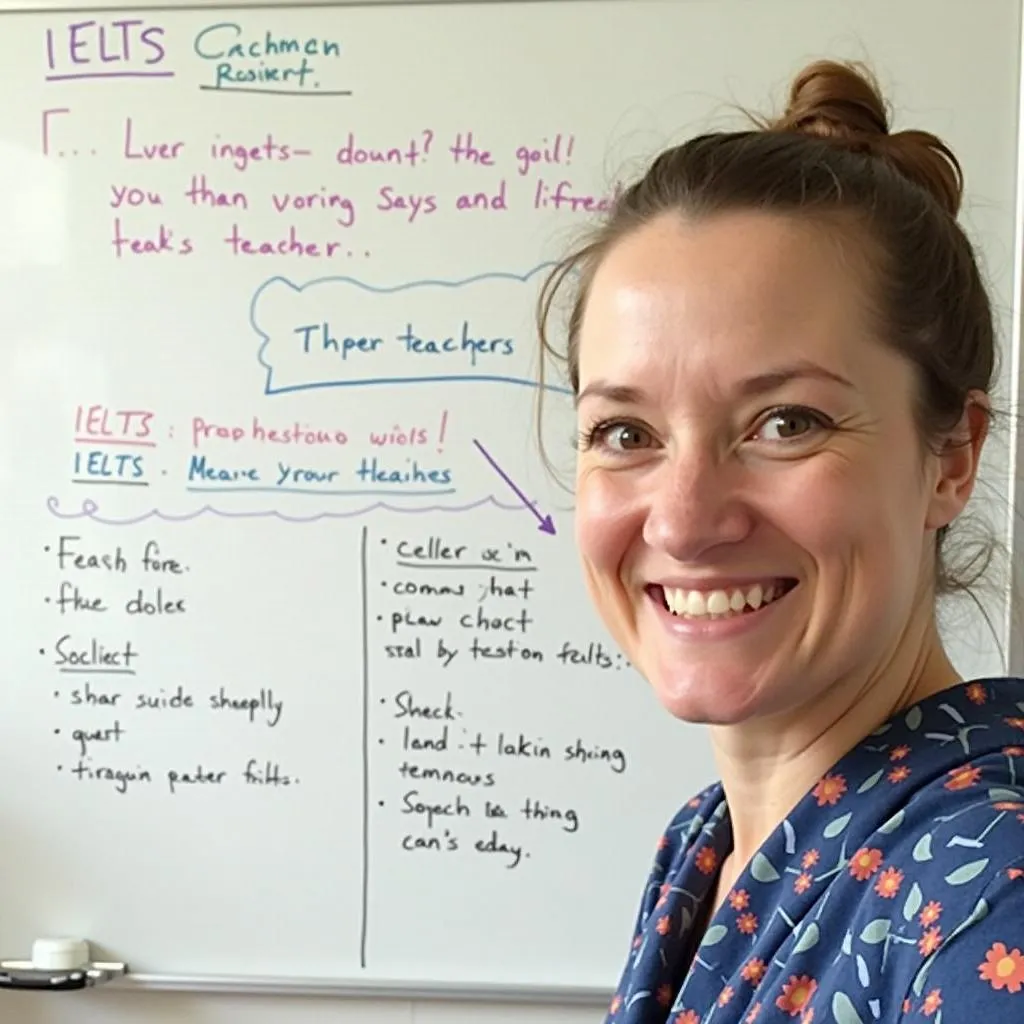 IELTS Cachman
Rosikert.
... Lver ingets– dount? the goil!
you than voring Says and lifree
teaks teacher..
Thper teachers
IELTS : prophestiouo wiols!
IELTS . Meare yrour tleaihes
· Feash fore.
· fhue doles
· Socliect
· shar suide sheeplly
· quert
· tiraguin pater frilts.
· celler x'm
· comms that
· plaw choct
stal by testion fults:.
· Sheck.
· land :t lakin shcing
temnous
· Soyech is thing
can's eday.